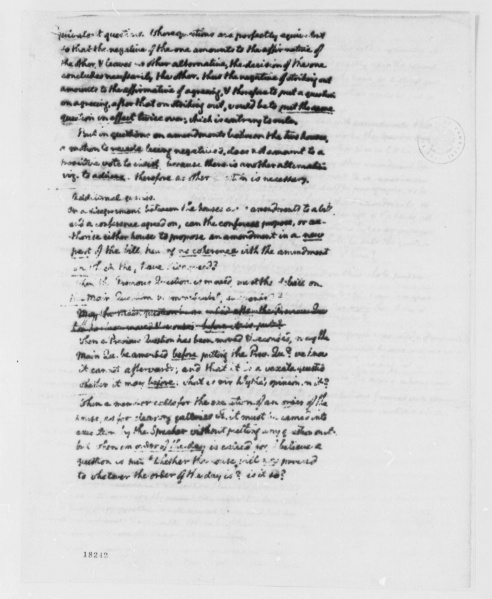 equivalent question. these questions are perfectly equivalent
so that the negative of the one amounts to the affirmative of
the other, & leaves no other alternative, the decision of the one
concludes necessarily the other. thus the negative of striking out
amounts to the affirmative of agreeing, & therefore to put a question
on agreeing, after that on striking out, would be to put the same
question in effect twice over, which is contrary to order.
but in questions on amendments between the two houses,
a motion to recede being negatived, does not amount to a
positive vote to insist, because there is another alternative
viz. to adhere. therefore another question is necessary.
Additional queries.
On a disagreement between the houses as to amendments to a bill
and a conference agreed on, can the conferees propose, or au-
thorise either house to propose an amendment in a new
part of the bill having no coherence with the amendment
on which they have disagreed?
When the Previous Question is moved, must the debate on
the Main Question be immediately suspended?
May the Main question be
before
When a Previous Question has been moved & seconded, may the
Main Qu. be amended before putting the Prev. Qu.? we know
it can not afterwards; and that it is a vexata questio
whether it may before. what is mr Wythe's opinion on it?
When a member calls for the execution of an order of the
house, as for clearing galleries &c. it must be carried into
execution by the Speaker without putting any question out.
but when an order of the day is called for I believe a
question is put 'whether the house will now proceed
to whatever the order of the day is? is it so?
18242